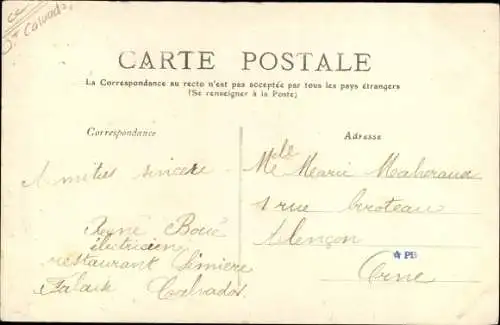 Calvados
CARTE POSTALE
La Correspondance au recto n'est pas acceptée par tous les pays étrangers
(Se renseigner à la Poste)
Correspondance
Amitiés sincère
René Boué
électricien
restaurant Simiere
Falaise Calvados
Adresse
Melle Marie Maheraux
1 rue
Alençon
PB
Orne